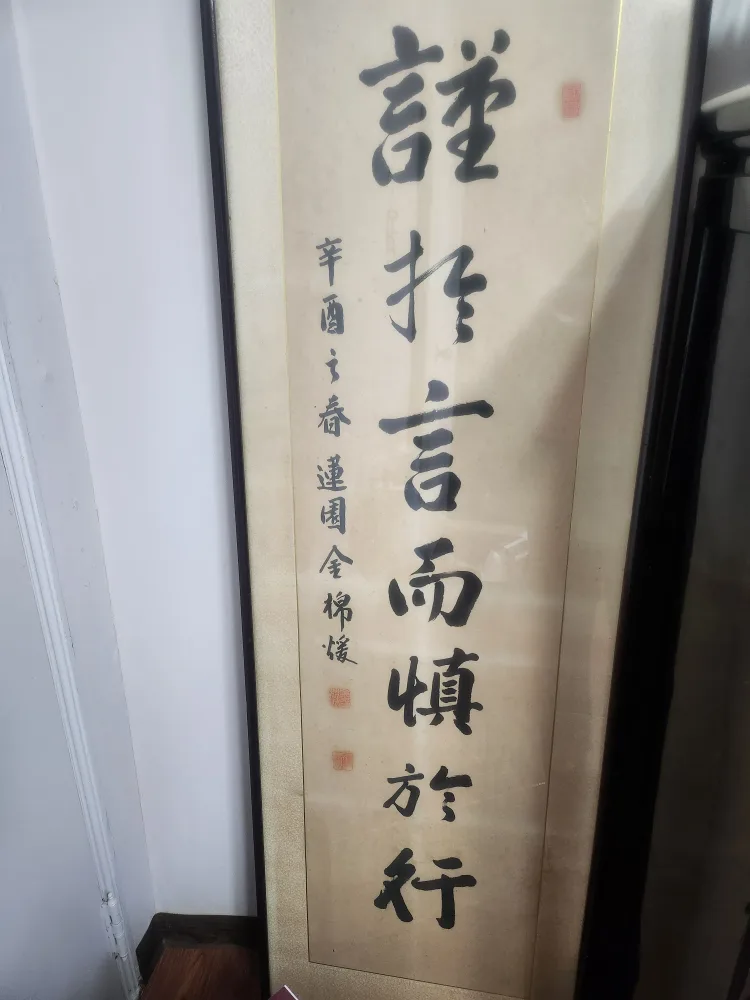 謹於言而慎於行
辛酉之春蓮園金棉煖